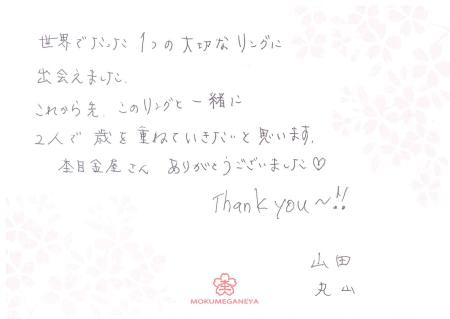 世界でたった1つの大切なリングに
出会えました。
これから先、このリングと一緒に
2人で歳を重ねていきたいと思います。
杢目金屋さん ありがとうございました♡
Thank you〜!!
山田
丸山
MOKUMEGANEYA